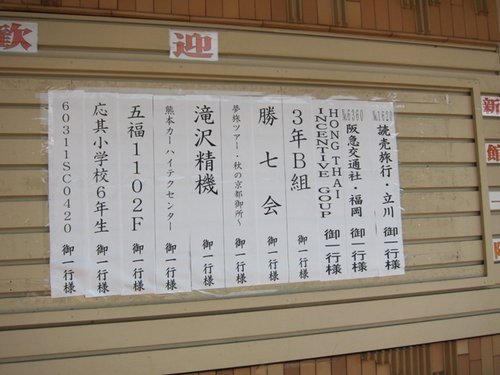 歓
迎
№1620
読売旅行・立川 御一行様
№6360
阪急交通社・福岡 御一行様
HONG THAI
INCENTIVE GOUP 御一行様
3年B組 御一行様
勝七会 御一行様
夢旅ツアー・秋の京都御所〜 御一行様
滝沢精機 御一行様
熊本カーハイテクセンター 御一行様
五福1102F 御一行様
応其小学校6年生 御一行様
60311SC0420 御一行様
新
館